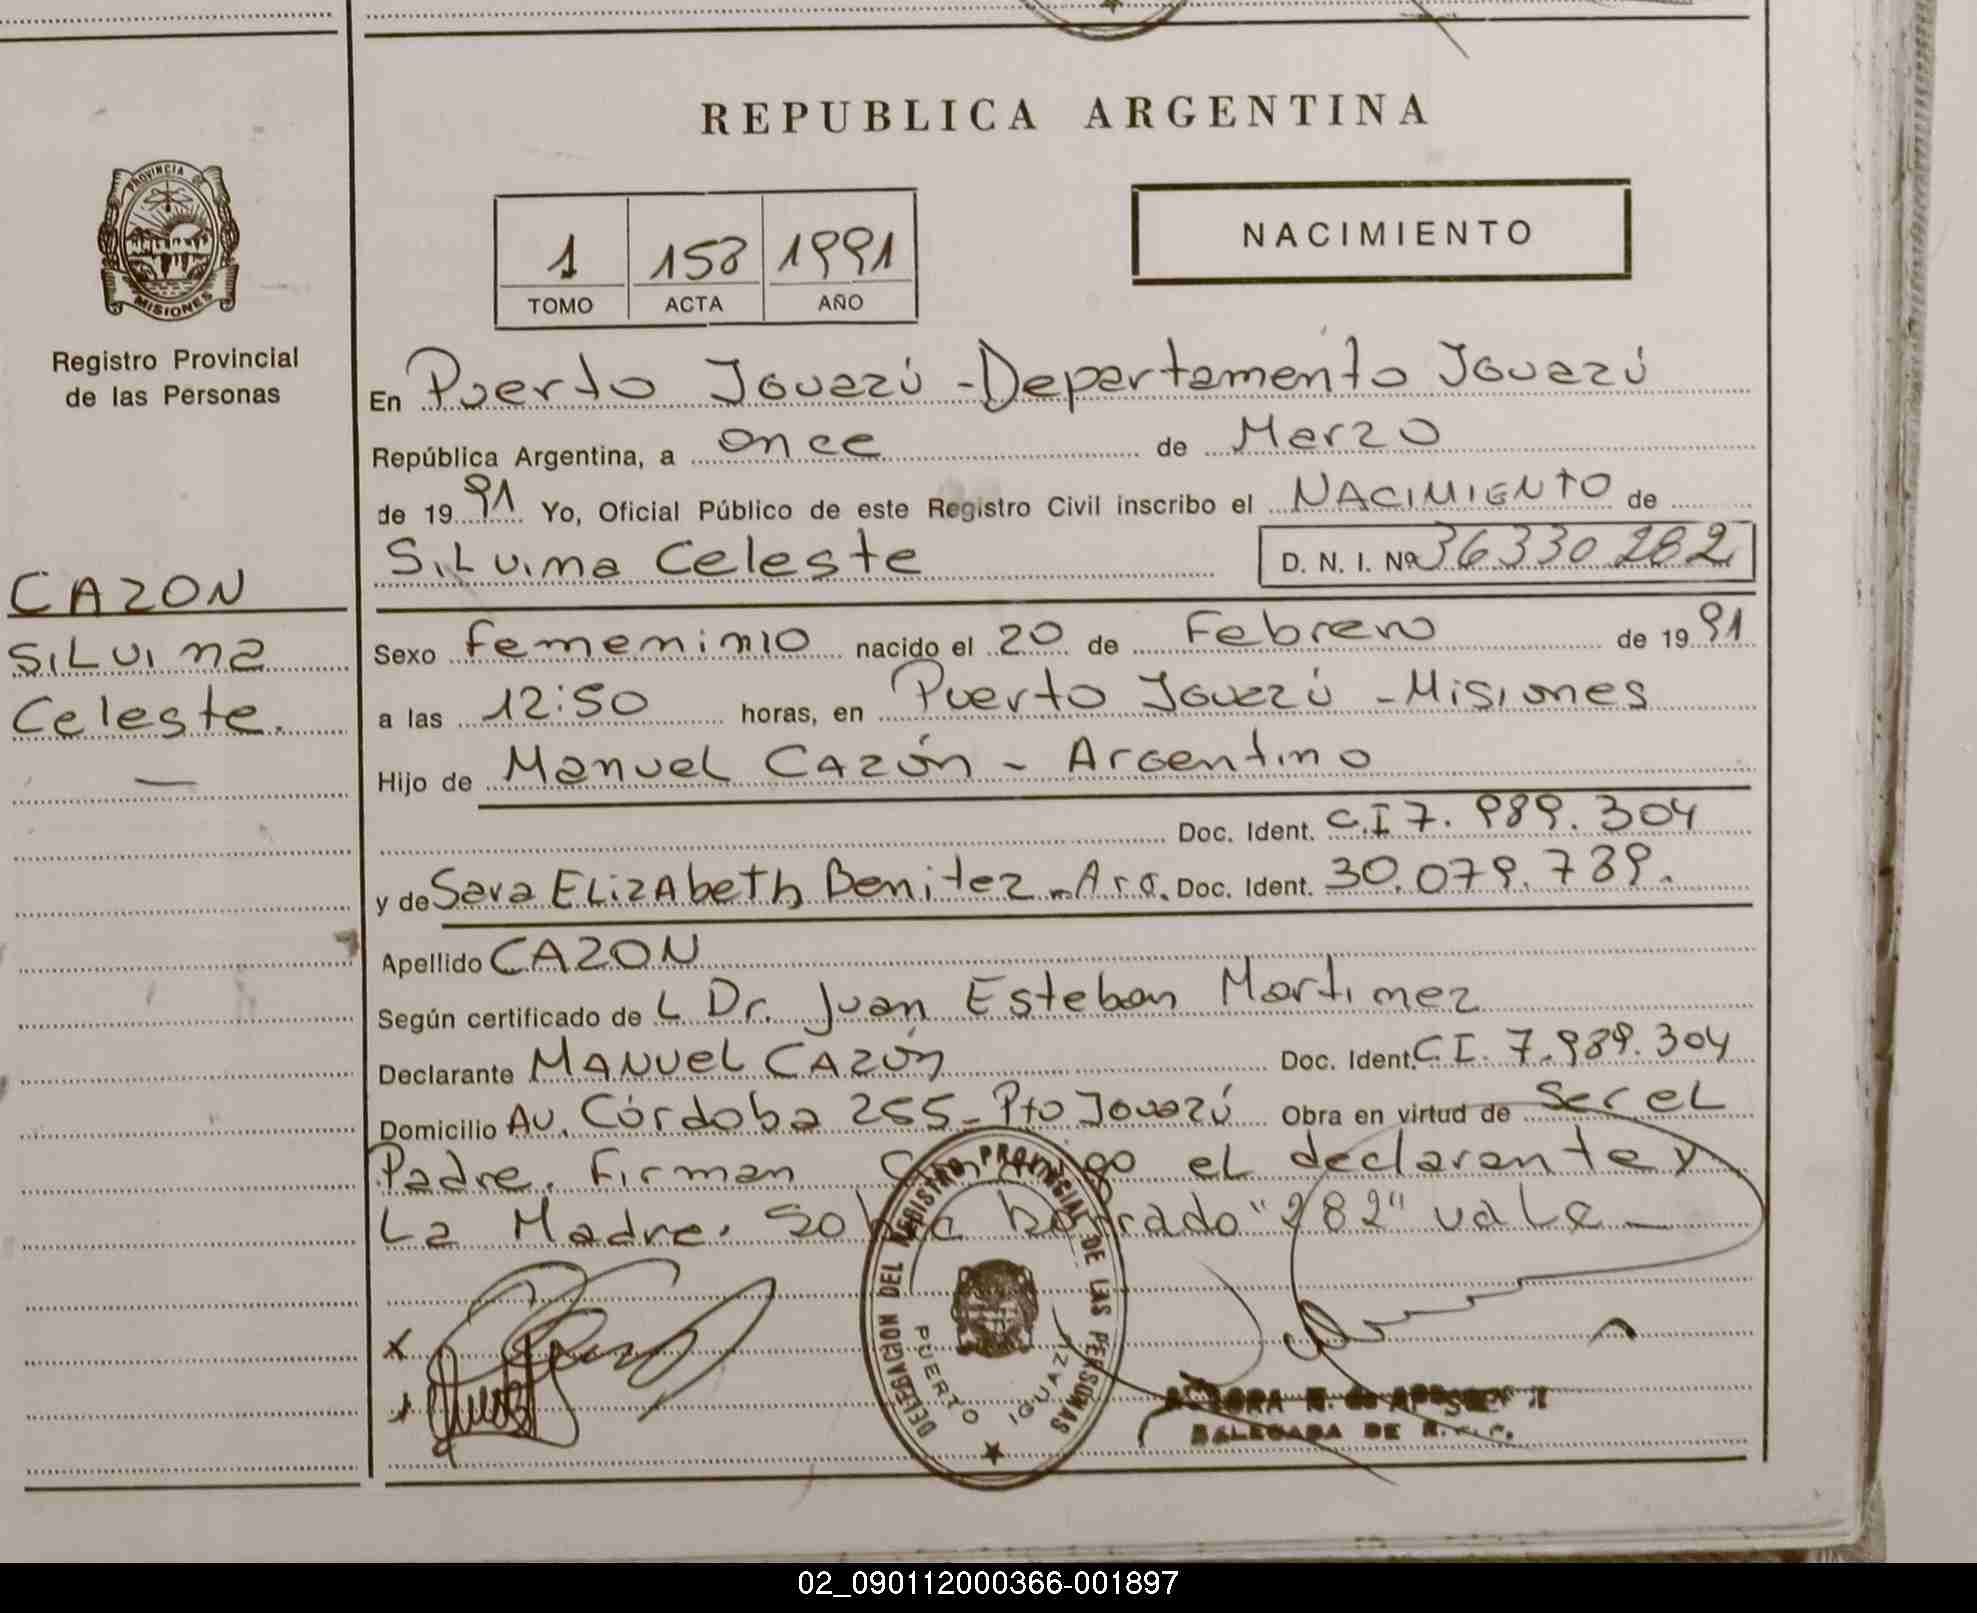 REPUBLICA ARGENTINA
PROVINCIA DE
MISIONES
Registro Provincial
de las Personas
1 158 1991
TOMO ACTA AÑO
NACIMIENTO
En Puerto Iguazú - Departamento Iguazú
República Argentina, a once de Marzo
de 1991 Yo, Oficial Público de este Registro Civil inscribo el NACIMIENTO de
Silvina Celeste D. N. I. Nº 36330282
CAZON
Silvina
Celeste.
Sexo femenino nacido el 20 de Febrero de 1991
a las 12:50 horas, en Puerto Iguazú - Misiones
Hijo de Manuel Cazón - Argentino
Doc. Ident. C.I 7.989.304
y de Sara ELIZAbeTh Benitez - Arg. Doc. Ident. 30.079.789.
Apellido CAZON
Según certificado de L Dr. Juan Esteban Martinez
Declarante MANUel CAZón Doc. Ident. C.I. 7.989.304
Domicilio Av. Córdoba 255 - Pto Iguazú Obra en virtud de Ser el
Padre. Firman Conmigo el declarante y
La Madre. Sobre borrado "282" vale
DELEGACION DEL REGISTRO PROVINCIAL DE LAS PERSONAS
PUERTO IGUAZU
DE
02_090112000366-001897